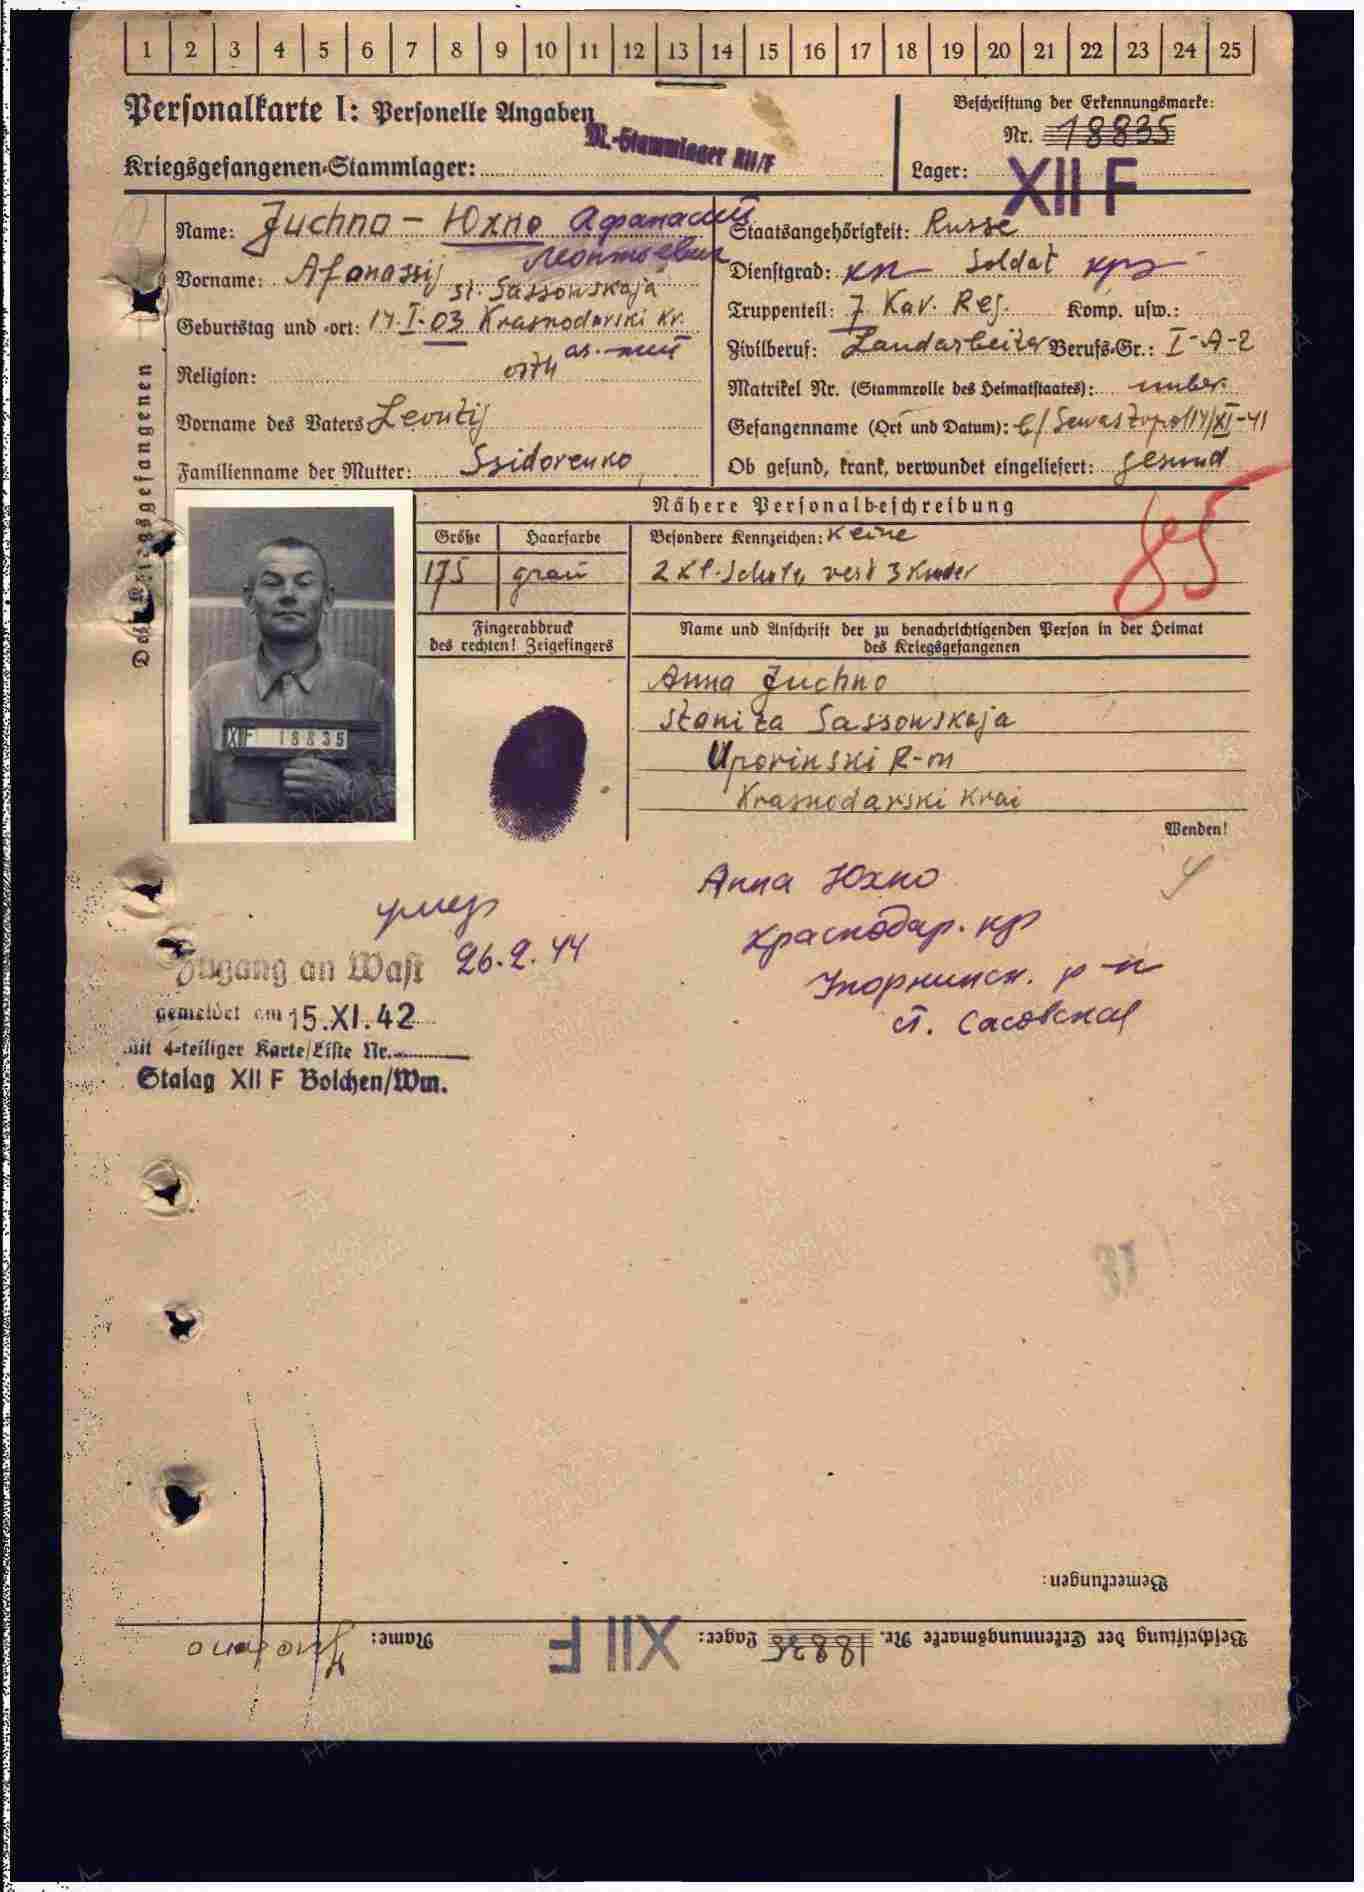 1 2 3 4 5 6 7 8 9 10 11 12 13 14 15 16 17 18 19 20 21 22 23 24 25
Personalkarte I: Personelle Angaben
Beschriftung der Erkennungsmarke:
Nr. 18835
M.-Stammlager XII/F
Kriegsgefangenen-Stammlager:
Lager: XII F
Des Kriegsgefangenen
Name: Juchno - Юхно Афанасий
Леонтьевич
Vorname: Afanassij
st. Sassowskaja
Geburtstag und -ort: 14.I-03 Krasnodarski Kr.
Religion: orth
Vorname des Vaters Leontij
Familienname der Mutter: Ssidorenko
Staatsangehörigkeit: Russe
Dienstgrad: Soldat кр
Truppenteil: 7 Kav. Reg. Komp. usw.:
Zivilberuf: Landarbeiter Berufs-Gr.: I-A-2
Matrikel Nr. (Stammrolle des Heimatstaates): unber.
Gefangenname (Ort und Datum): b/ Sewastopol 14/XI-41
Ob gesund, krank, verwundet eingeliefert: gesund
Nähere Personalbeschreibung
Größe Haarfarbe Besondere Kennzeichen: Keine
175 grau 2 Kl. Schule, verh 3 Kinder
XII F 18835
Fingerabdruck
des rechten! Zeigefingers
Name und Anschrift der zu benachrichtigenden Person in der Heimat
des Kriegsgefangenen
Anna Juchno
Staniza Sassowskaja
Uporinski R-on
Krasnodarski Krai
Wenden!
Анна Юхно
Краснодар. кр
Упорнинск. р-н
ст. Сасовская
умер
26.2.44
Zugang an Wast
gemeldet am 15.XI.42
mit 4-teiliger Karte/Liste Nr.
Stalag XII F Bolchen/Wm.
Bemerkungen:
Beschriftung der Erkennungsmarke Nr. 18835 Lager: XII F Name: Juchno
ПАМЯТЬ
НАРОДА